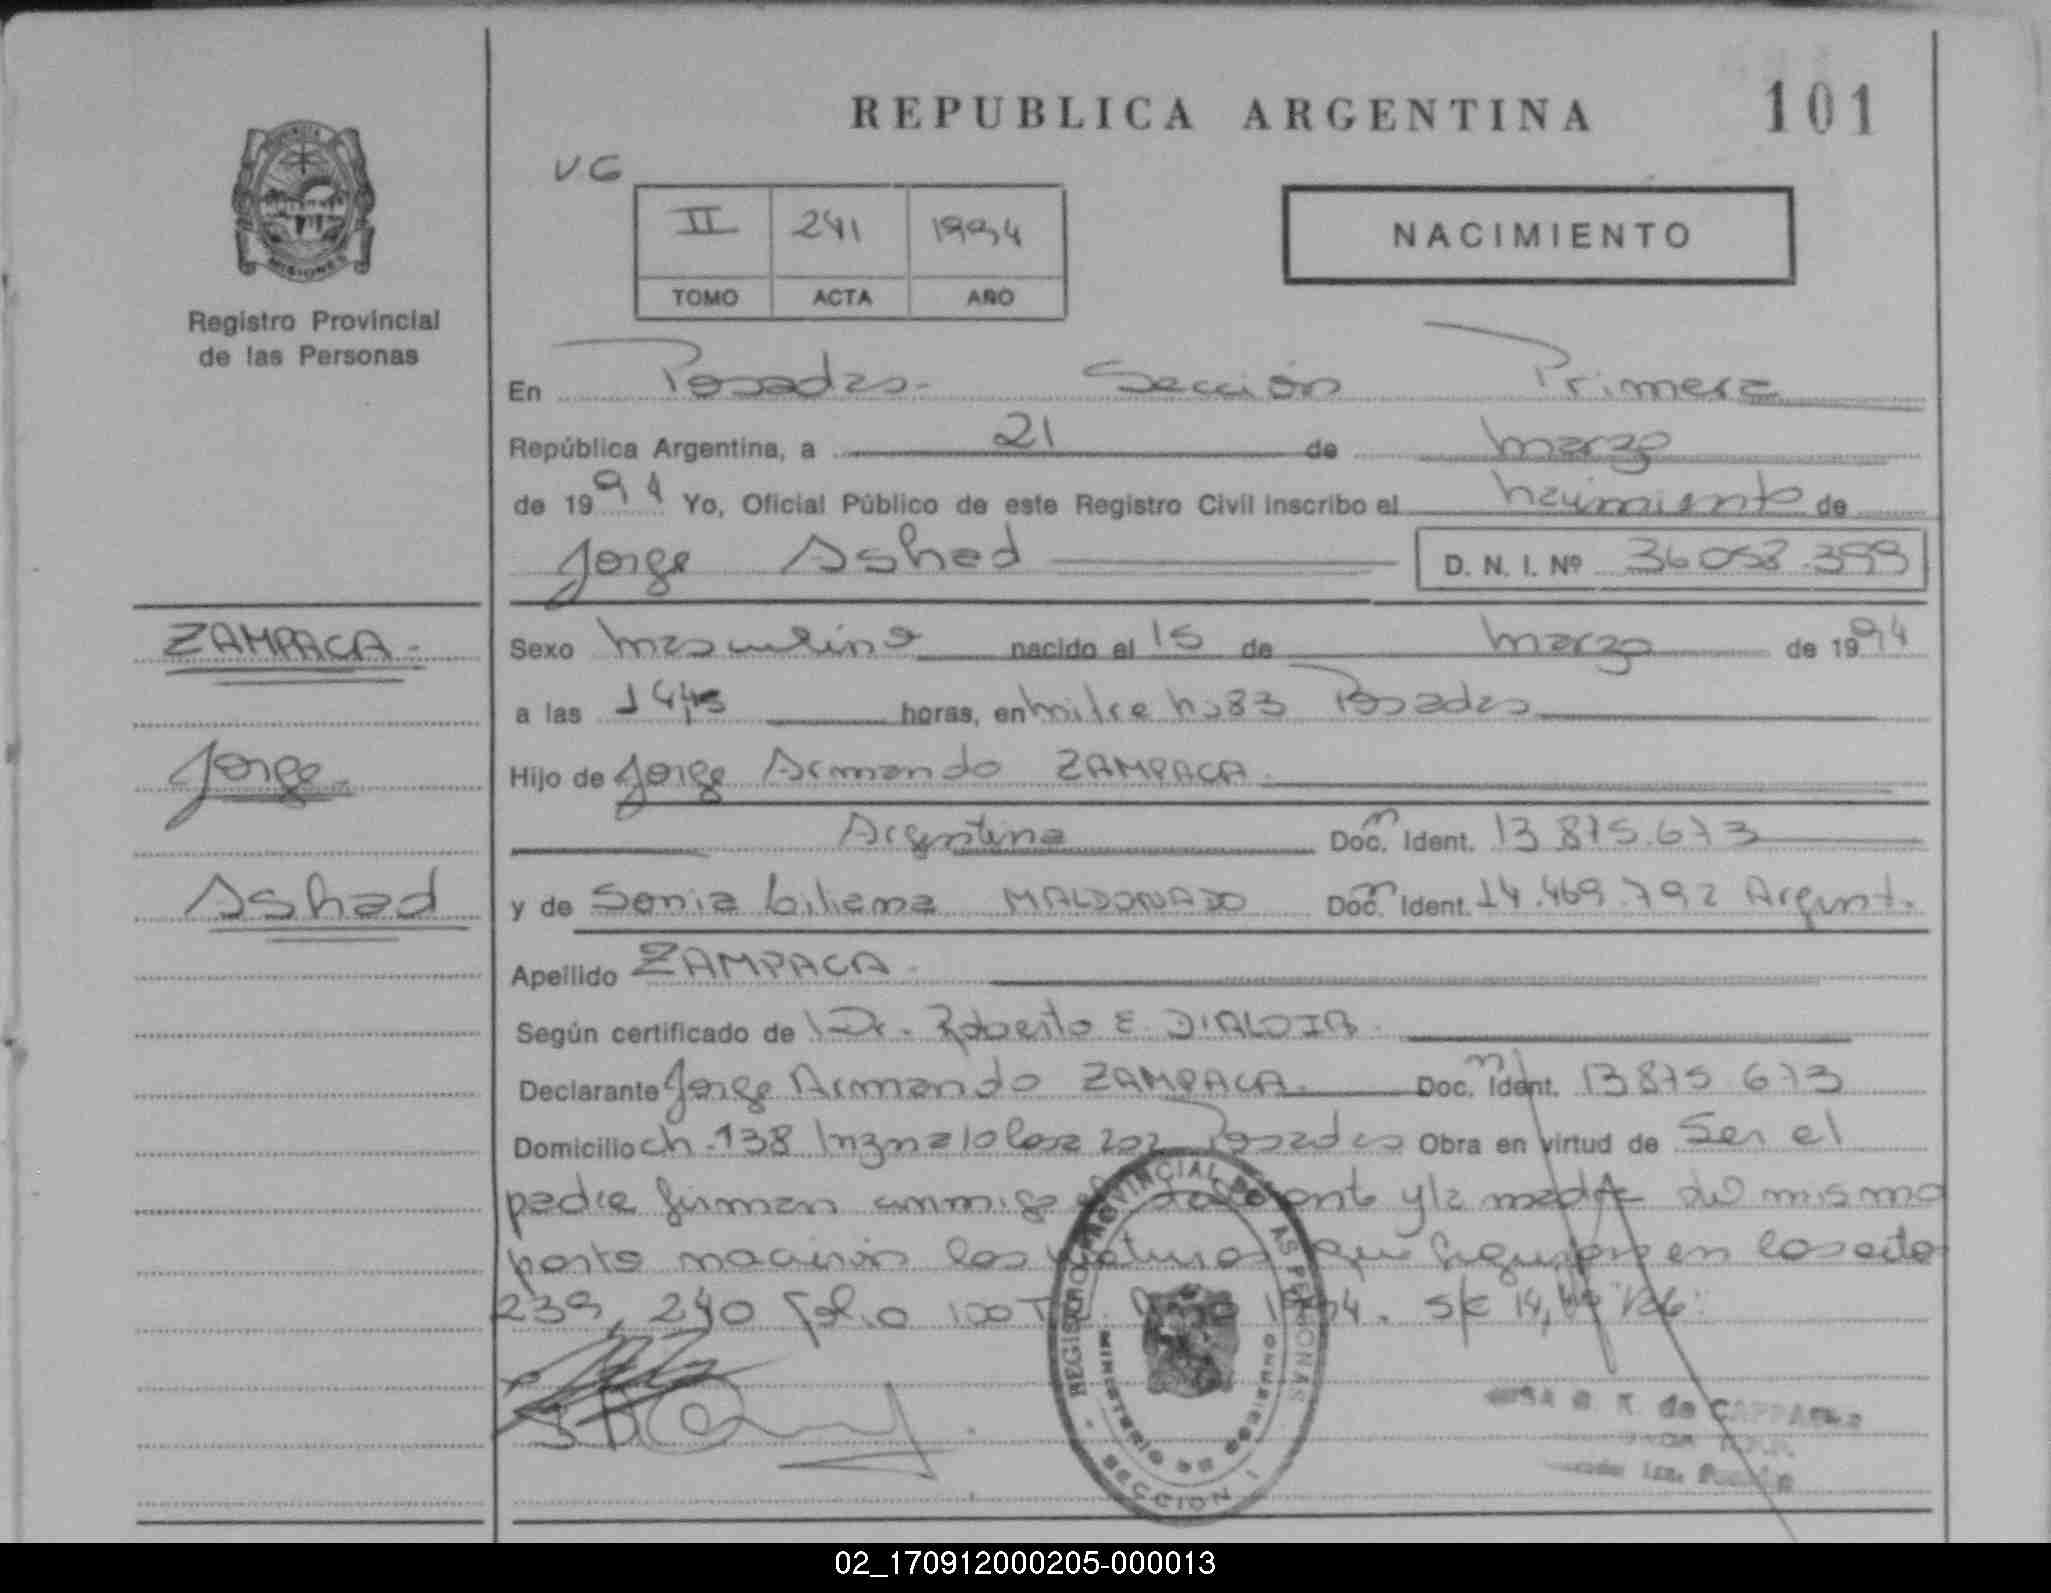 REPUBLICA ARGENTINA
101
MISIONES
Registro Provincial
de las Personas
VG
II 241 1994
TOMO ACTA AÑO
NACIMIENTO
En Posadas - Sección Primera
República Argentina, a 21 de marzo
de 1994 Yo, Oficial Público de este Registro Civil inscribo el nacimiento de
Jorge Ashad D. N. I. Nº 36 058.399
ZAMPACA -
Jorge
Ashad
Sexo masculino nacido el 15 de marzo de 1994
a las 14,45 horas, en 83 Posadas
Hijo de Jorge Armando ZAMPACA
Argentina Doc. Ident. 13 875.673
y de Sonia Liliana MALDONADO Doc. Ident. 14.469.792 Argent.
Apellido ZAMPACA
Según certificado de Dr. Roberto E.
Declarante Jorge Armando ZAMPACA Doc. Ident. 13 875 673
Domicilio ch. 138 202 Posadas Obra en virtud de Ser el
padre firman conmigo y la madre del mismo
parto nacieron los que figuran en los actas
239, 240 folio 100 T 1994. S/R 14,49
REGISTRO PROVINCIAL DE LAS PERSONAS
MINISTERIO DE GOBIERNO
SECCION I
02_170912000205-000013